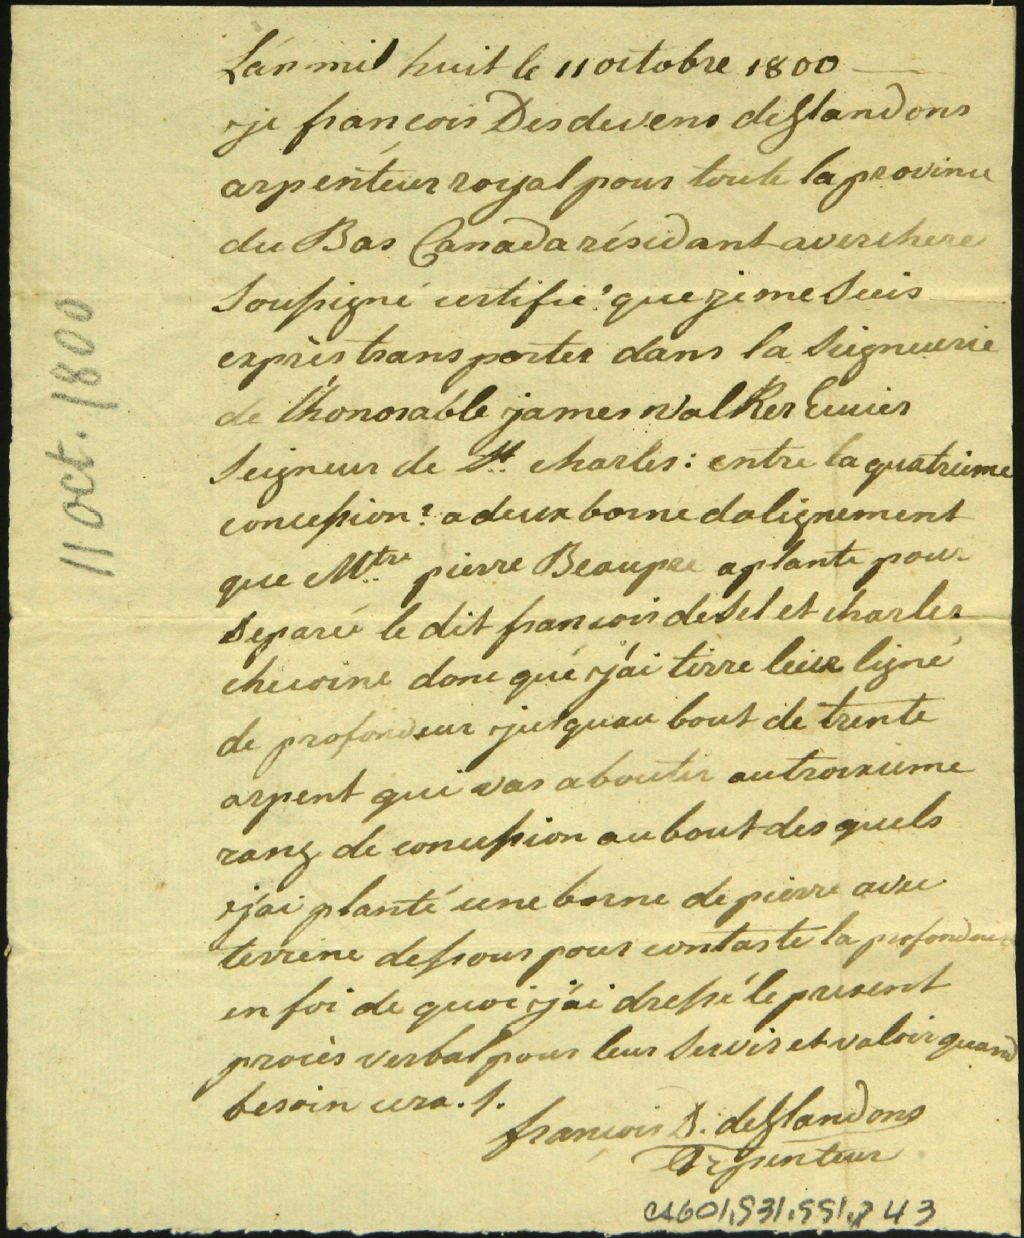 L'an mil huit le 11 octobre 1800
je françois Desdevens deglandons
arpenteur royal pour toute la province
du Bas Canada résidant a verchere
Soussigné certifie que je me suis
exprès trans porter dans la Seigneurie
de l'honorable james walker Ecuier
Seigneur de St. charles: entre la quatrieme
concession a deux borne dalignement
que Mtre pierre Beaupre a planté pour
separé le dit françois desel et charles
donc qué j'ai tirre leur ligné
de profondeur jusquau bout de trente
arpent qui vas aboutir au troixieme
rang de concession au bout des quels
j'ai planté une borne de pierre avec
terrine dessous pour contaste la profondeur
en foi de quoi j'ai dressé le present
procès verbal pour leur Servir et valoir quand
besoin cera. /.
françois D. deglandons
Arpenteur
11 oct. 1800
CA601,S31,SS1,D 43